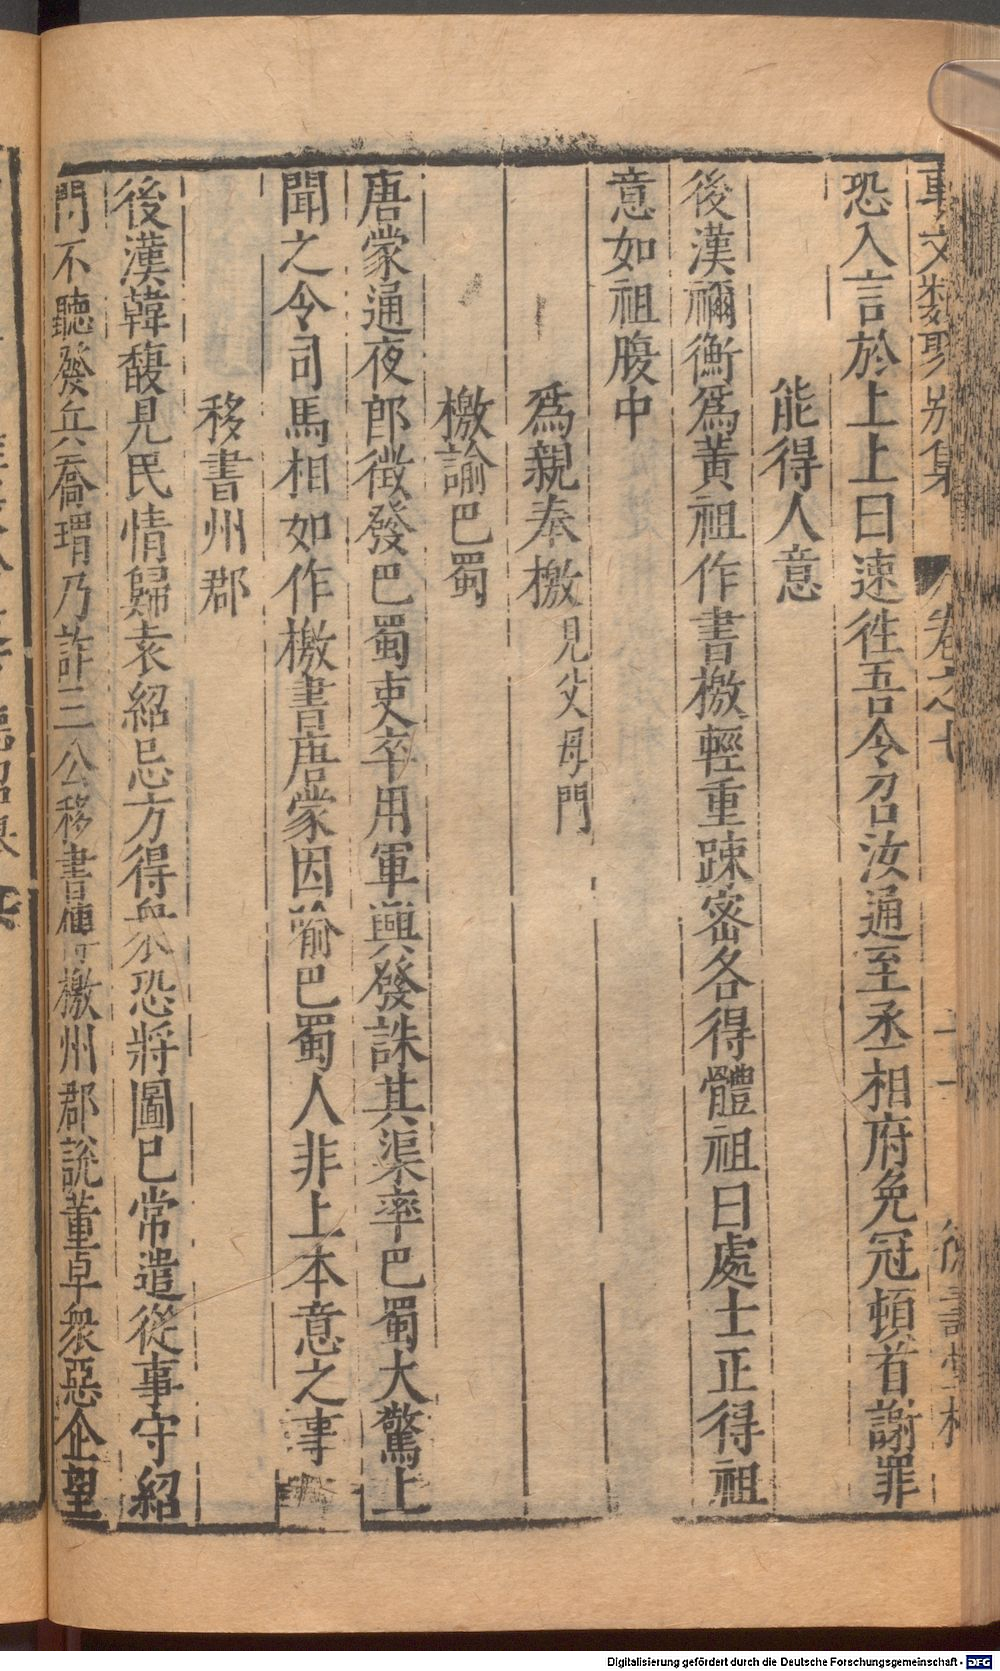 事文類聚別集 卷之七 二十一
恐入言於上上曰速徃吾今召汝通至丞相府免冠頓首謝罪
能得人意
後漢禰衡爲黃祖作書檄輕重踈宻各得體祖曰處士正得祖
意如祖腹中
爲親奉檄見父母門
檄諭巴蜀
唐蒙通夜郎徵發巴蜀吏卒用軍興發誅其渠率巴蜀大驚上
聞之令司馬相如作檄書唐蒙因喻巴蜀人非上本意之事
移書州郡
後漢韓馥見民情歸袁紹忌方得衆恐將圖巳常遣從事守紹
門不聽發兵喬瑁乃詐三公移書傳檄州郡説董卓衆惡企望
Digitalisierung gefördert durch die Deutsche Forschungsgemeinschaft - DFG